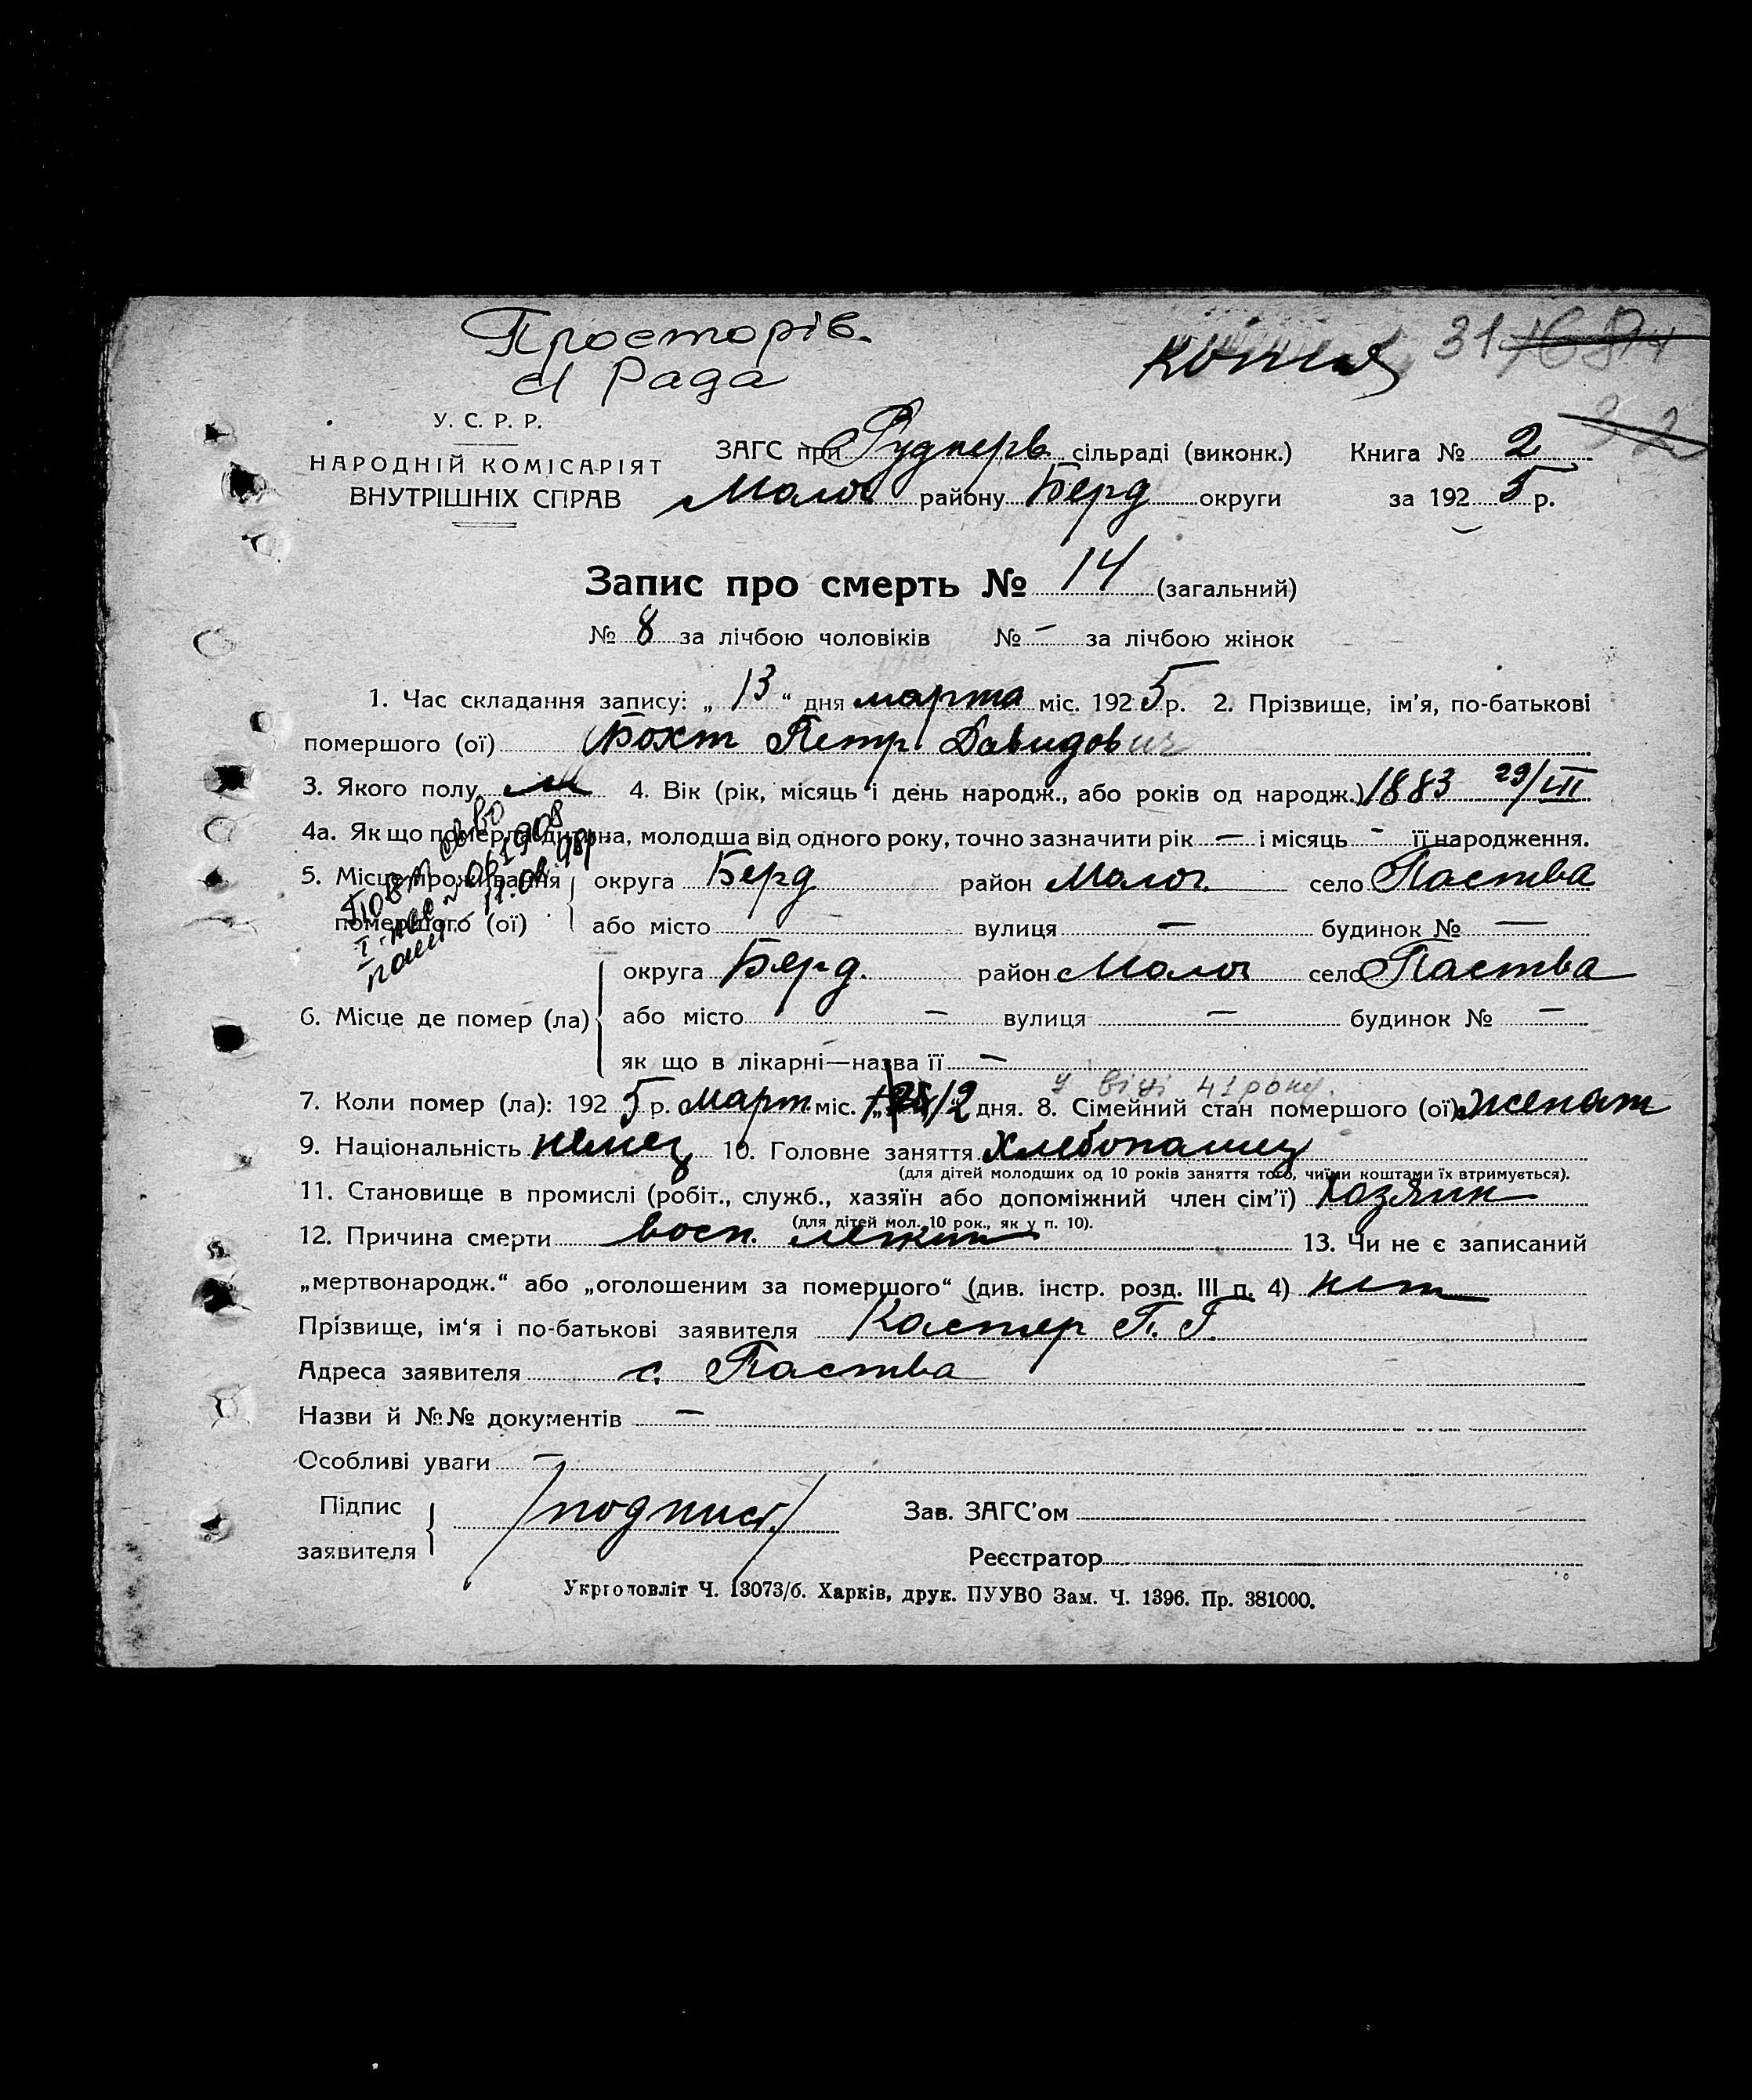 Просторів.
с/ Рада
копия 31
У. С. Р. Р.
НАРОДНІЙ КОМІСАРІЯТ
ВНУТРІШНІХ СПРАВ
ЗАГС при Рудnерв сільраді (виконк.) Книга № 2
Молоч району Берд округи за 192 5 р.
Запис про смерть № 14 (загальний)
№ 8 за лічбою чоловіків № – за лічбою жінок
1. Час складання запису: „ 13 “ дня марта міс. 192 5 р. 2. Прізвище, ім'я, по-батькові
помершого (ої) Бохт Петр Давидович
3. Якого полу м 4. Вік (рік, місяць і день народж., або років од народж.) 1883 29/III
4а. Як що померла дитина, молодша від одного року, точно зазначити рік — і місяць - її народження.
5. Місце проживання помершого (ої) округа Берд район Молоч. село Паства
або місто вулиця — будинок № —
6. Місце де помер (ла) округа Берд. район Молоч село Паства
або місто — вулиця — будинок № —
як що в лікарні—назва її —
у віці 41 року.
7. Коли помер (ла): 192 5 р. март міс. 12 дня. 8. Сімейний стан помершого (ої) женат
9. Національність немец 10. Головне заняття Хлебопашец
(для дітей молодших од 10 років заняття того, чиїми коштами їх втримується).
11. Становище в промислі (робіт., служб., хазяїн або допоміжний член сім'ї) хозяин
(для дітей мол. 10 рок., як у п. 10).
12. Причина смерти восп. легких 13. Чи не є записаний
„мертвонародж.“ або „оголошеним за помершого“ (див. інстр. розд. III п. 4) нет
Прізвище, ім'я і по-батькові заявителя Костер П. Г.
Адреса заявителя с. Паства
Назви й №№ документів —
Особливі уваги —
Підпис заявителя /подпись/ Зав. ЗАГС'ом
Реєстратор
Укрголовліт Ч. 13073/б. Харків, друк. ПУУВО Зам. Ч. 1396. Пр. 381000.